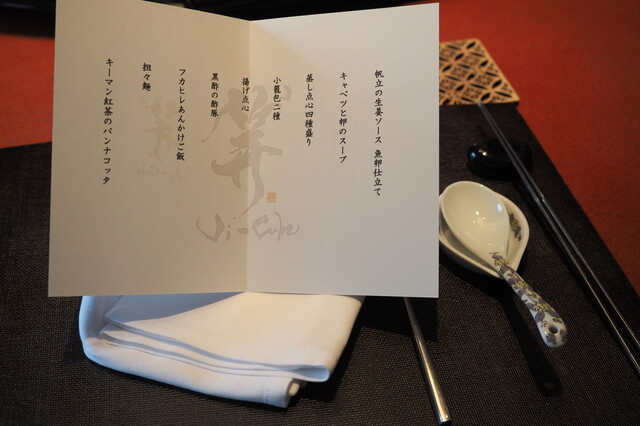 帆立の生姜ソース 魚卵仕立て
キャベツと卵のスープ
蒸し点心四種盛り
小籠包二種
揚げ点心
黒酢の酢豚
フカヒレあんかけご飯
担々麺
キーマン紅茶のパンナコッタ
Ji-Cube